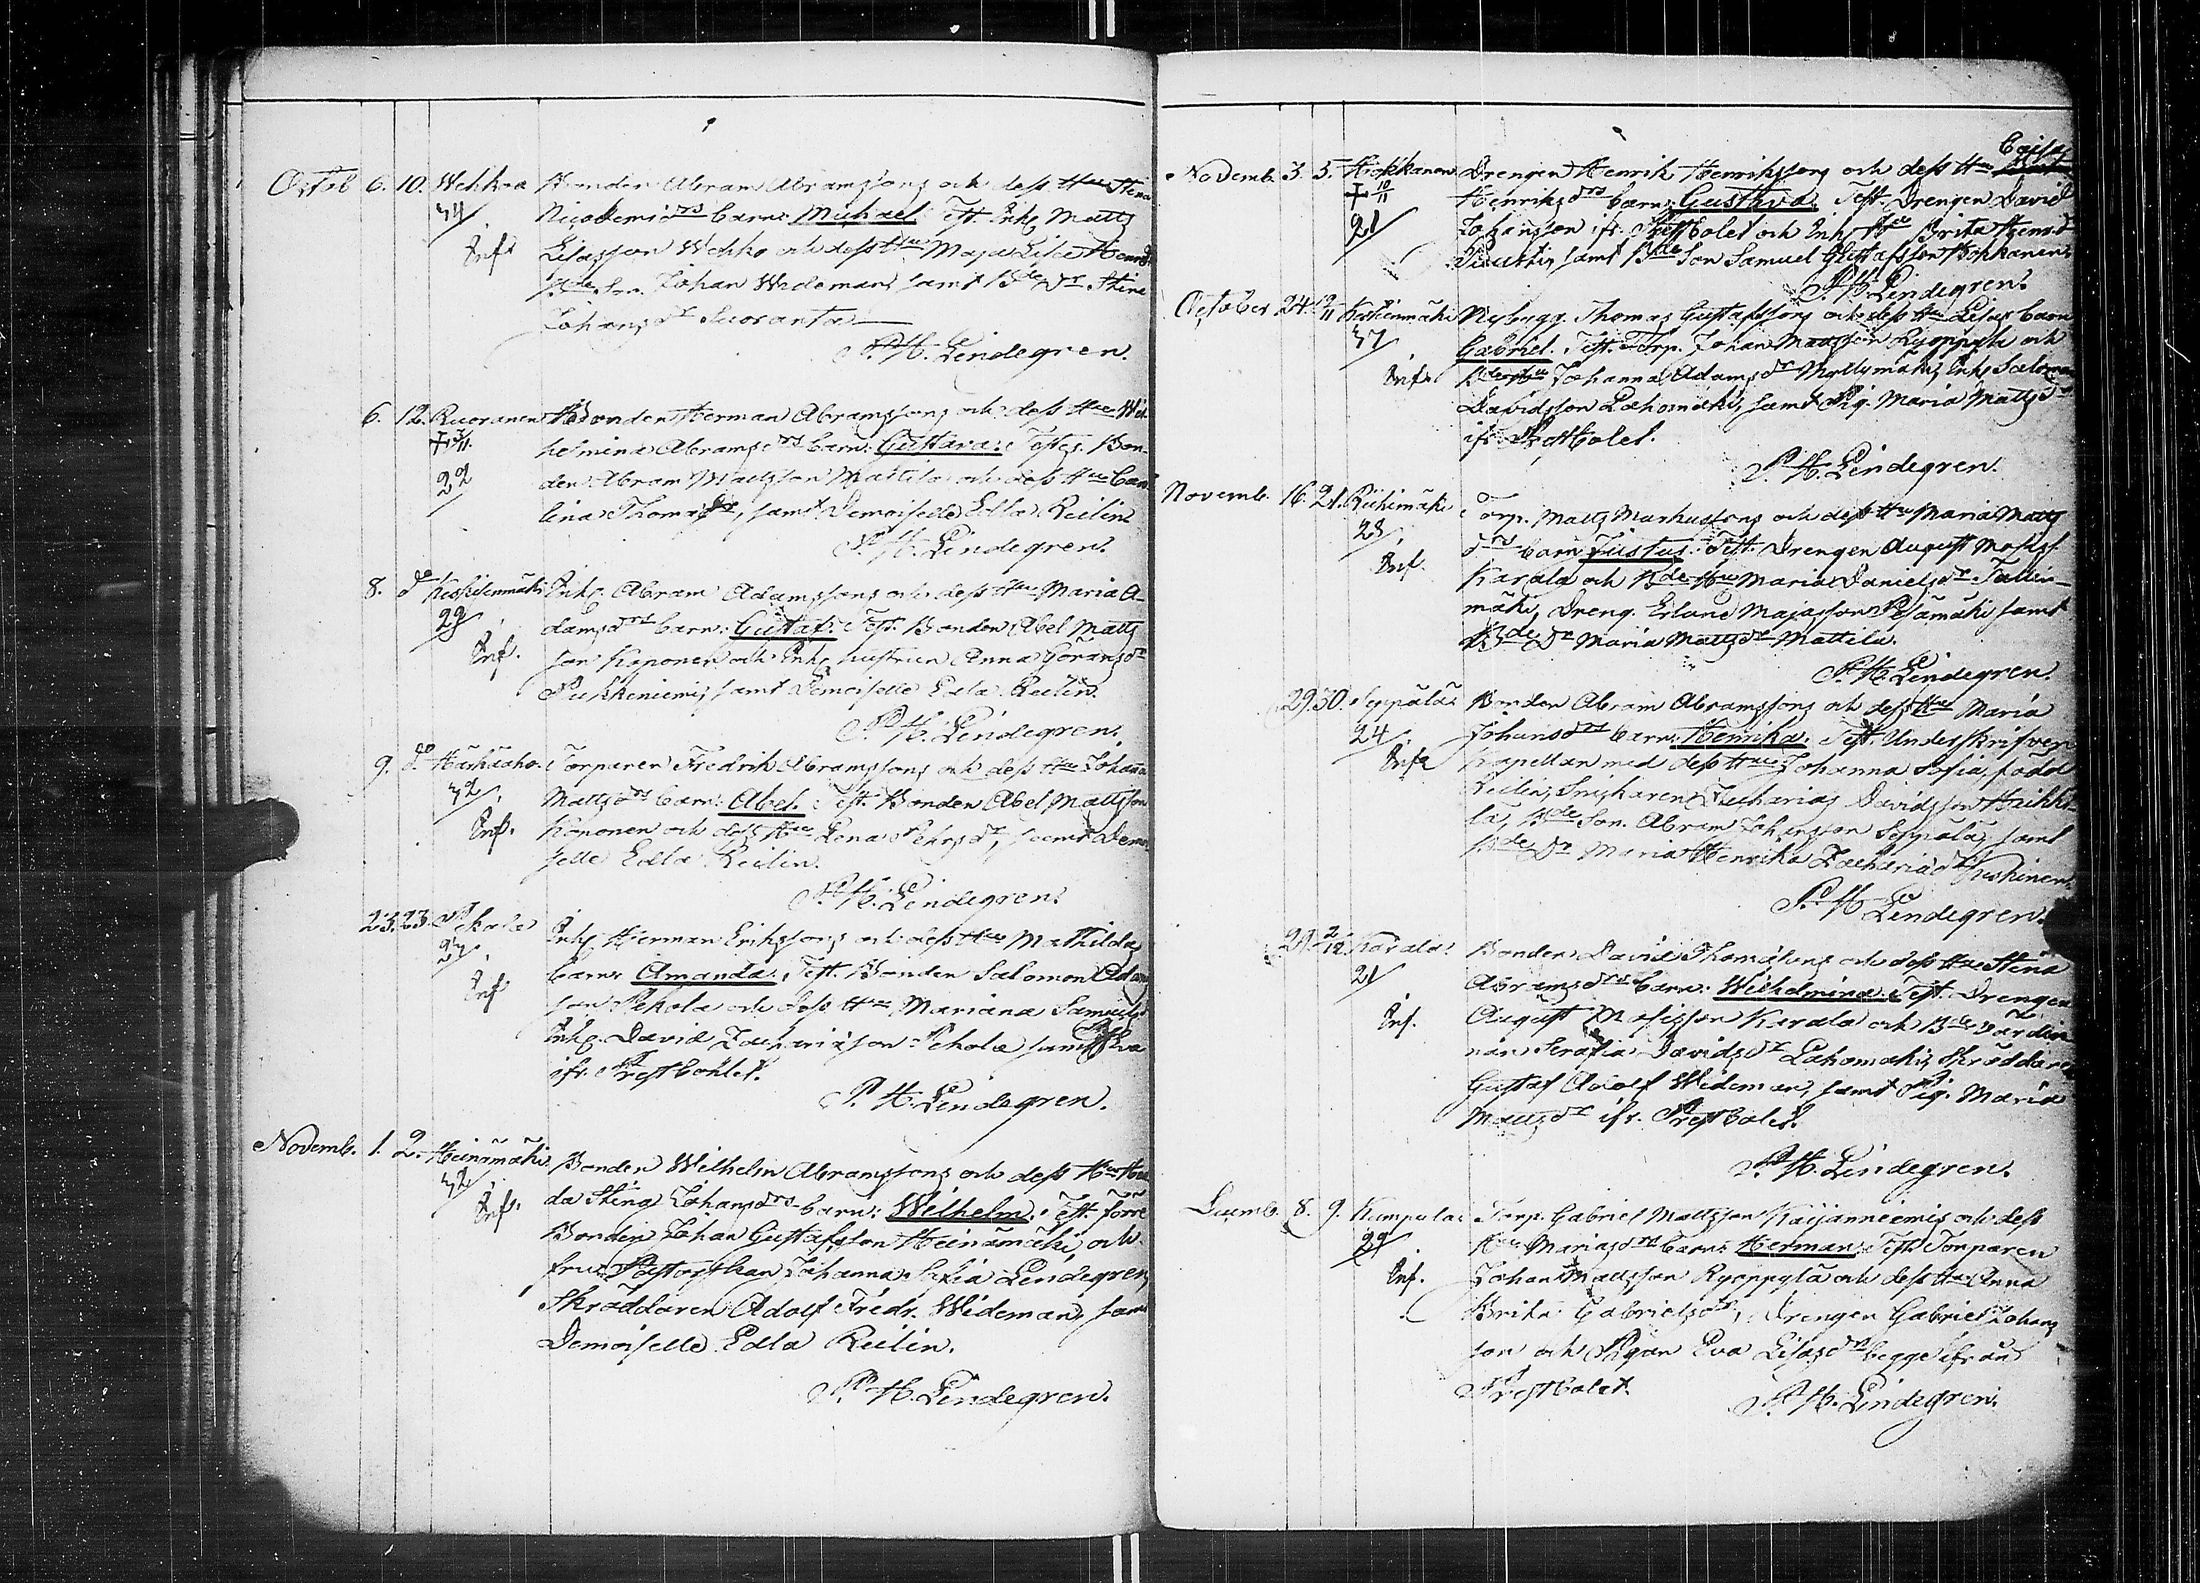 Octob 6. 10. Wehko Bonden Abram Abramssons och dess Hu Stina
34/ Nicodemi drs barn: Michael. Test. Inh. Matts
Inf. Eliasson Wehko och dess Hu Maja Lisa Henrs
Bde Son Johan Wideman, samt Bde Dr Stina
Johans dr Suoranta
P. H. Lindegren.
6. 12. Ruoranen Bonden Herman Abramssons och dess Hu Wil
+ 3/11 helmina Abrams drs barn: Gustava. Test. Bon
22/ den Abram Mattsson Mattila och dess Hu Caro
lina Thomas dr, samt Demoiselle Edla Reilin.
P. H. Lindegren.
8. do Keskisenmäki Inh. Abram Adamssons och dess Hu Maria A
29/ dams drs barn: Gustaf. Test. Bonden Abel Matts
Inf. son Koponen och Inh. hustrun Anna Görans dr
samt Demoiselle Edla Reilin.
P. H. Lindegren.
9. do Torparen Fredrik Abramssons och dess Hu Johanna
32/ Matts drs barn: Abel. Test. Bonden Abel Mattsson
Inf. Kononen och dess Hu Lena Pehrs dr, samt Demoi
selle Edla Reilin.
P. H. Lindegren.
23. 23. Pekola Inh. Herman Erikssons och dess Hu Mathildas
27/ barn: Amanda. Test. Bonden Salomon Adams
Inf. son Pekola och dess Hu Mariana Samuels
Inh. David Zachariasson Pekola samt Eva
ifr. Prestbolet.
P. H. Lindegren.
Novemb. 1. 2. Heinämäki Bonden Wilhelm Abramssons och dess Hu Hed
32/ da Stina Johans drs barn: Wilhelm. Test. förre
Inf. Bonden Johan Gustafsson Heinämäki, och
fru Pastorskan Johanna Sofia Lindegren,
Skräddaren Adolf Fredr. Wideman, samt
Demoiselle Edla Reilin.
P. H. Lindegren.
Novemb. 3. 5. Hokkanen Drengen Henrik Henrikssons och dess Hu Caisa
+ 10/11 Henriks drs barn: Gustava. Test. Drengen David
21/ Johansson ifr. Prestbolet och Inh. Hu Brita Henrs dr
samt Bde Son Samuel Gustafsson Hokkanen.
P. H. Lindegren.
October 24. 12/11 Keskisenmäki Nybygg. Thomas Gustafssons och dess Hu Lisas barn
37/ Gabriel. Test. Torp. Johan Mattsson Ryöppylä och
Inf. Bde Hu Johanna Adams dr Myllymäki, Inh. Salomon
Davidsson Lahomäki, samt Pig. Maria Matts dr
ifr. Prestbolet.
P. H. Lindegren.
Novemb. 16. 21. Riihimäki Torp. Matts Markussons och dess Hu Maria Matts
28/ drs barn: Justus. Test. Drengen August Mosess.
Inf. Karala och Bde Hu Maria Daniels dr
mäki, Dreng. Erland Majasson Pesämäki samt
Bde Dr Maria Matts dr Mattila.
P. H. Lindegren.
29. 30. Seppälä Bonden Abram Abramssons och dess Hu Maria
24/ Johans drs barn: Henrika. Test. Underskrifven
Inf. Kapellan med dess Hu Johanna Sofia, född
Reilin, Snickaren Zacharias Davidsson Heikki
lä, Bde Son Abram Johansson Seppälä, samt
Bde Dr Maria Henrika Zacharias dr Keskinen.
P. H. Lindegren.
29. 2/12 Karala Bonden David Thomassons och dess Hu Stina
21/ Abrams drs barn: Wilhelmina. Test. Drengen
Inf. August Mosesson Karala och Bde Värdin
nan Serafia Davids dr Lahomäki, Skräddaren
Gustaf Adolf Wideman, samt Pig. Maria
Matts dr ifr. Prestbolet.
P. H. Lindegren.
Decemb. 8. 9. Kumpula Torp. Gabriel Mattsson Kaijanniemis och dess
29/ Hu Marias drs barn: Herman. Test. Torparen
Inf. Johan Mattsson Ryöppylä och dess Hu Anna
Brita Gabriels dr, Drengen Gabriel Johans
son och Pigan Eva Lisas dr begge ifrån
Prestbolet.
P. H. Lindegren.